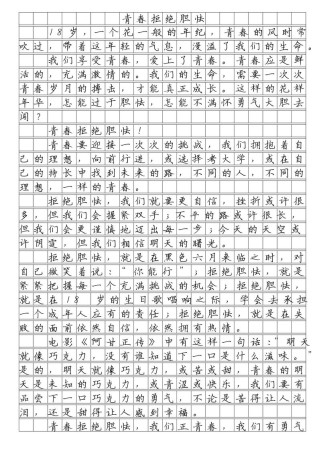 青春拒绝胆怯
18岁,一个花一般的年纪,青春的风时常
吹过,带着这年轻的气息,漫溢了我们的生命。
我们享受青春,爱上了青春。青春应是鲜
活的,充满激情的。我们的生命,需要一次次
青春岁月的搏击,才能真正成长。这样的花样
年华,怎能过于胆怯,怎能不满怀勇气大胆去
闯?
青春拒绝胆怯!
青春要迎接一次次的挑战,我们拥抱着自
己的理想,向前行进,或选择考大学,或在自
己的特长中找到未来的路,不同的人,不同的
理想,一样的青春。
拒绝胆怯,我们就要更自信,挫折或许很
多,但我们会握紧双手;不平的路或许很长,
但我们会更谨慎地迈出每一步;今天的天空或
许阴霾,但我们相信明天的曙光。
拒绝胆怯,就是在黑色六月来临之时,对
自己微笑着说:“你能行”;拒绝胆怯,就是
紧紧把握每一个充满挑战的机会;拒绝胆怯,
就是在18 岁的生日歌唱响之际,学会去承担
一个成年人应有的责任;拒绝胆怯,就是在失
败的面前依然自信,依然拥有热情。
电影《阿甘正传》中有这样一句话:“明天
就像巧克力,没有谁知道下一口是什么滋味。”
是的,明天就像巧克力,或苦或甜,青春的明
天是未知的巧克力,或青涩或快乐,我们要有
品尝下一口巧克力的勇气,不论是苦得让人流
泪,还是甜得让人感到幸福。
青春拒绝胆怯,我们正青春,我们有勇